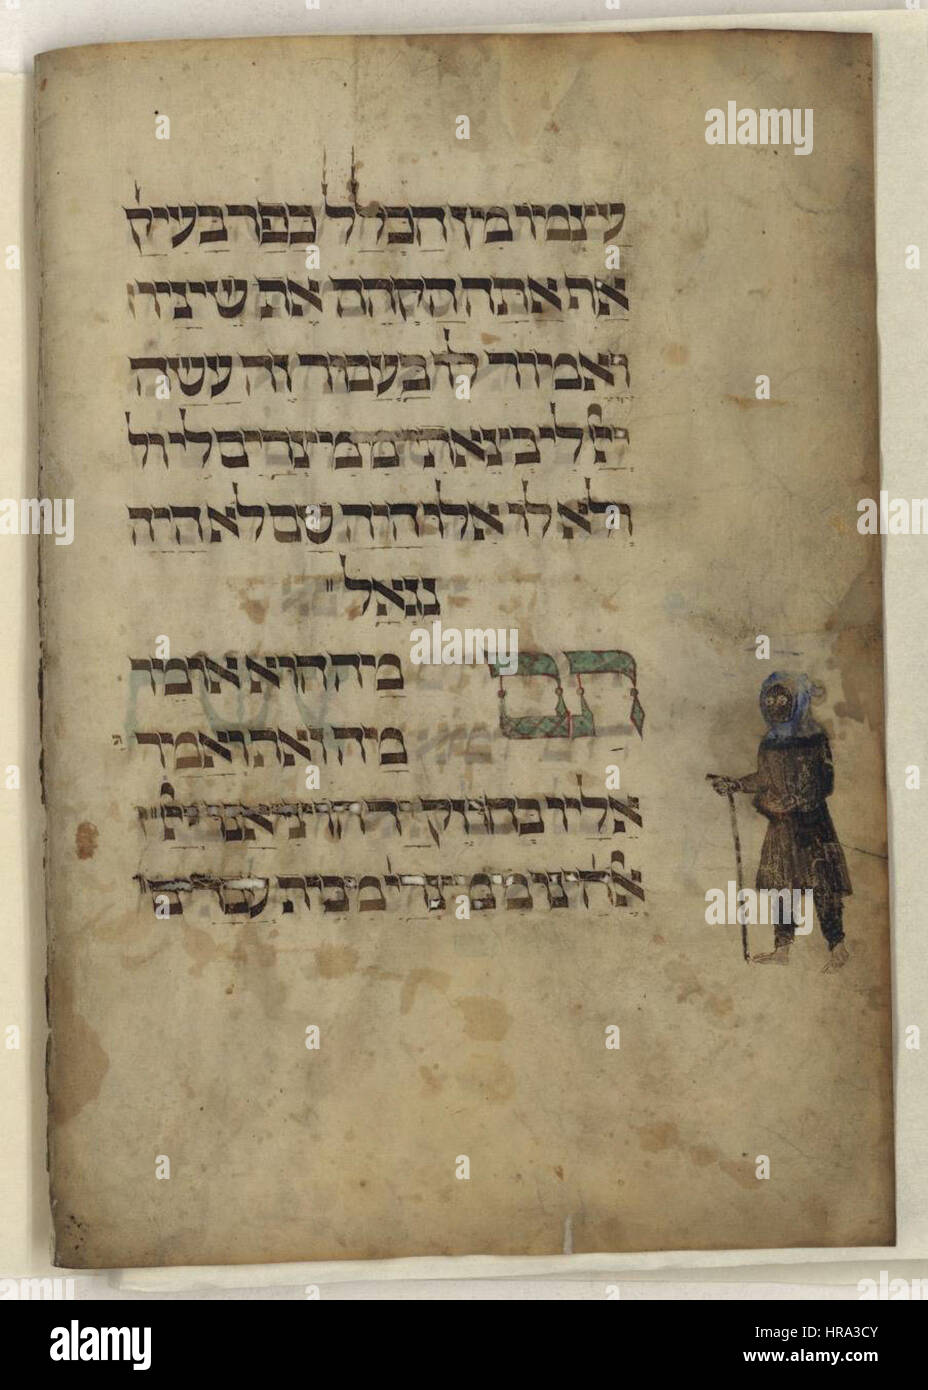 עצמו מן הכלל כפר בעיק
את אתה הקהה את שיניו
ואמור לו בעבור זה עשה
יי לי בצאתי ממצרים לי ול
ולא לו אלו היה שם לא היה
נגאל
תם מה הוא אומר
מה זאת ואמר
אליו בחוזק יד הוציאנו יי
ממצרים מבית עבדים
alamy
a
HRA3CY
www.alamy.com